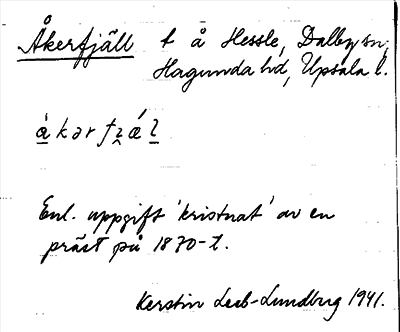 Åkerfjäll t å Hessle, Dalby sn,
Hagunda hd, Upsala l.
åkərfʒǽl
Enl. uppgift 'kristnat' av en
präst på 1870-t.
Kerstin Leeb-Lundberg 1941.